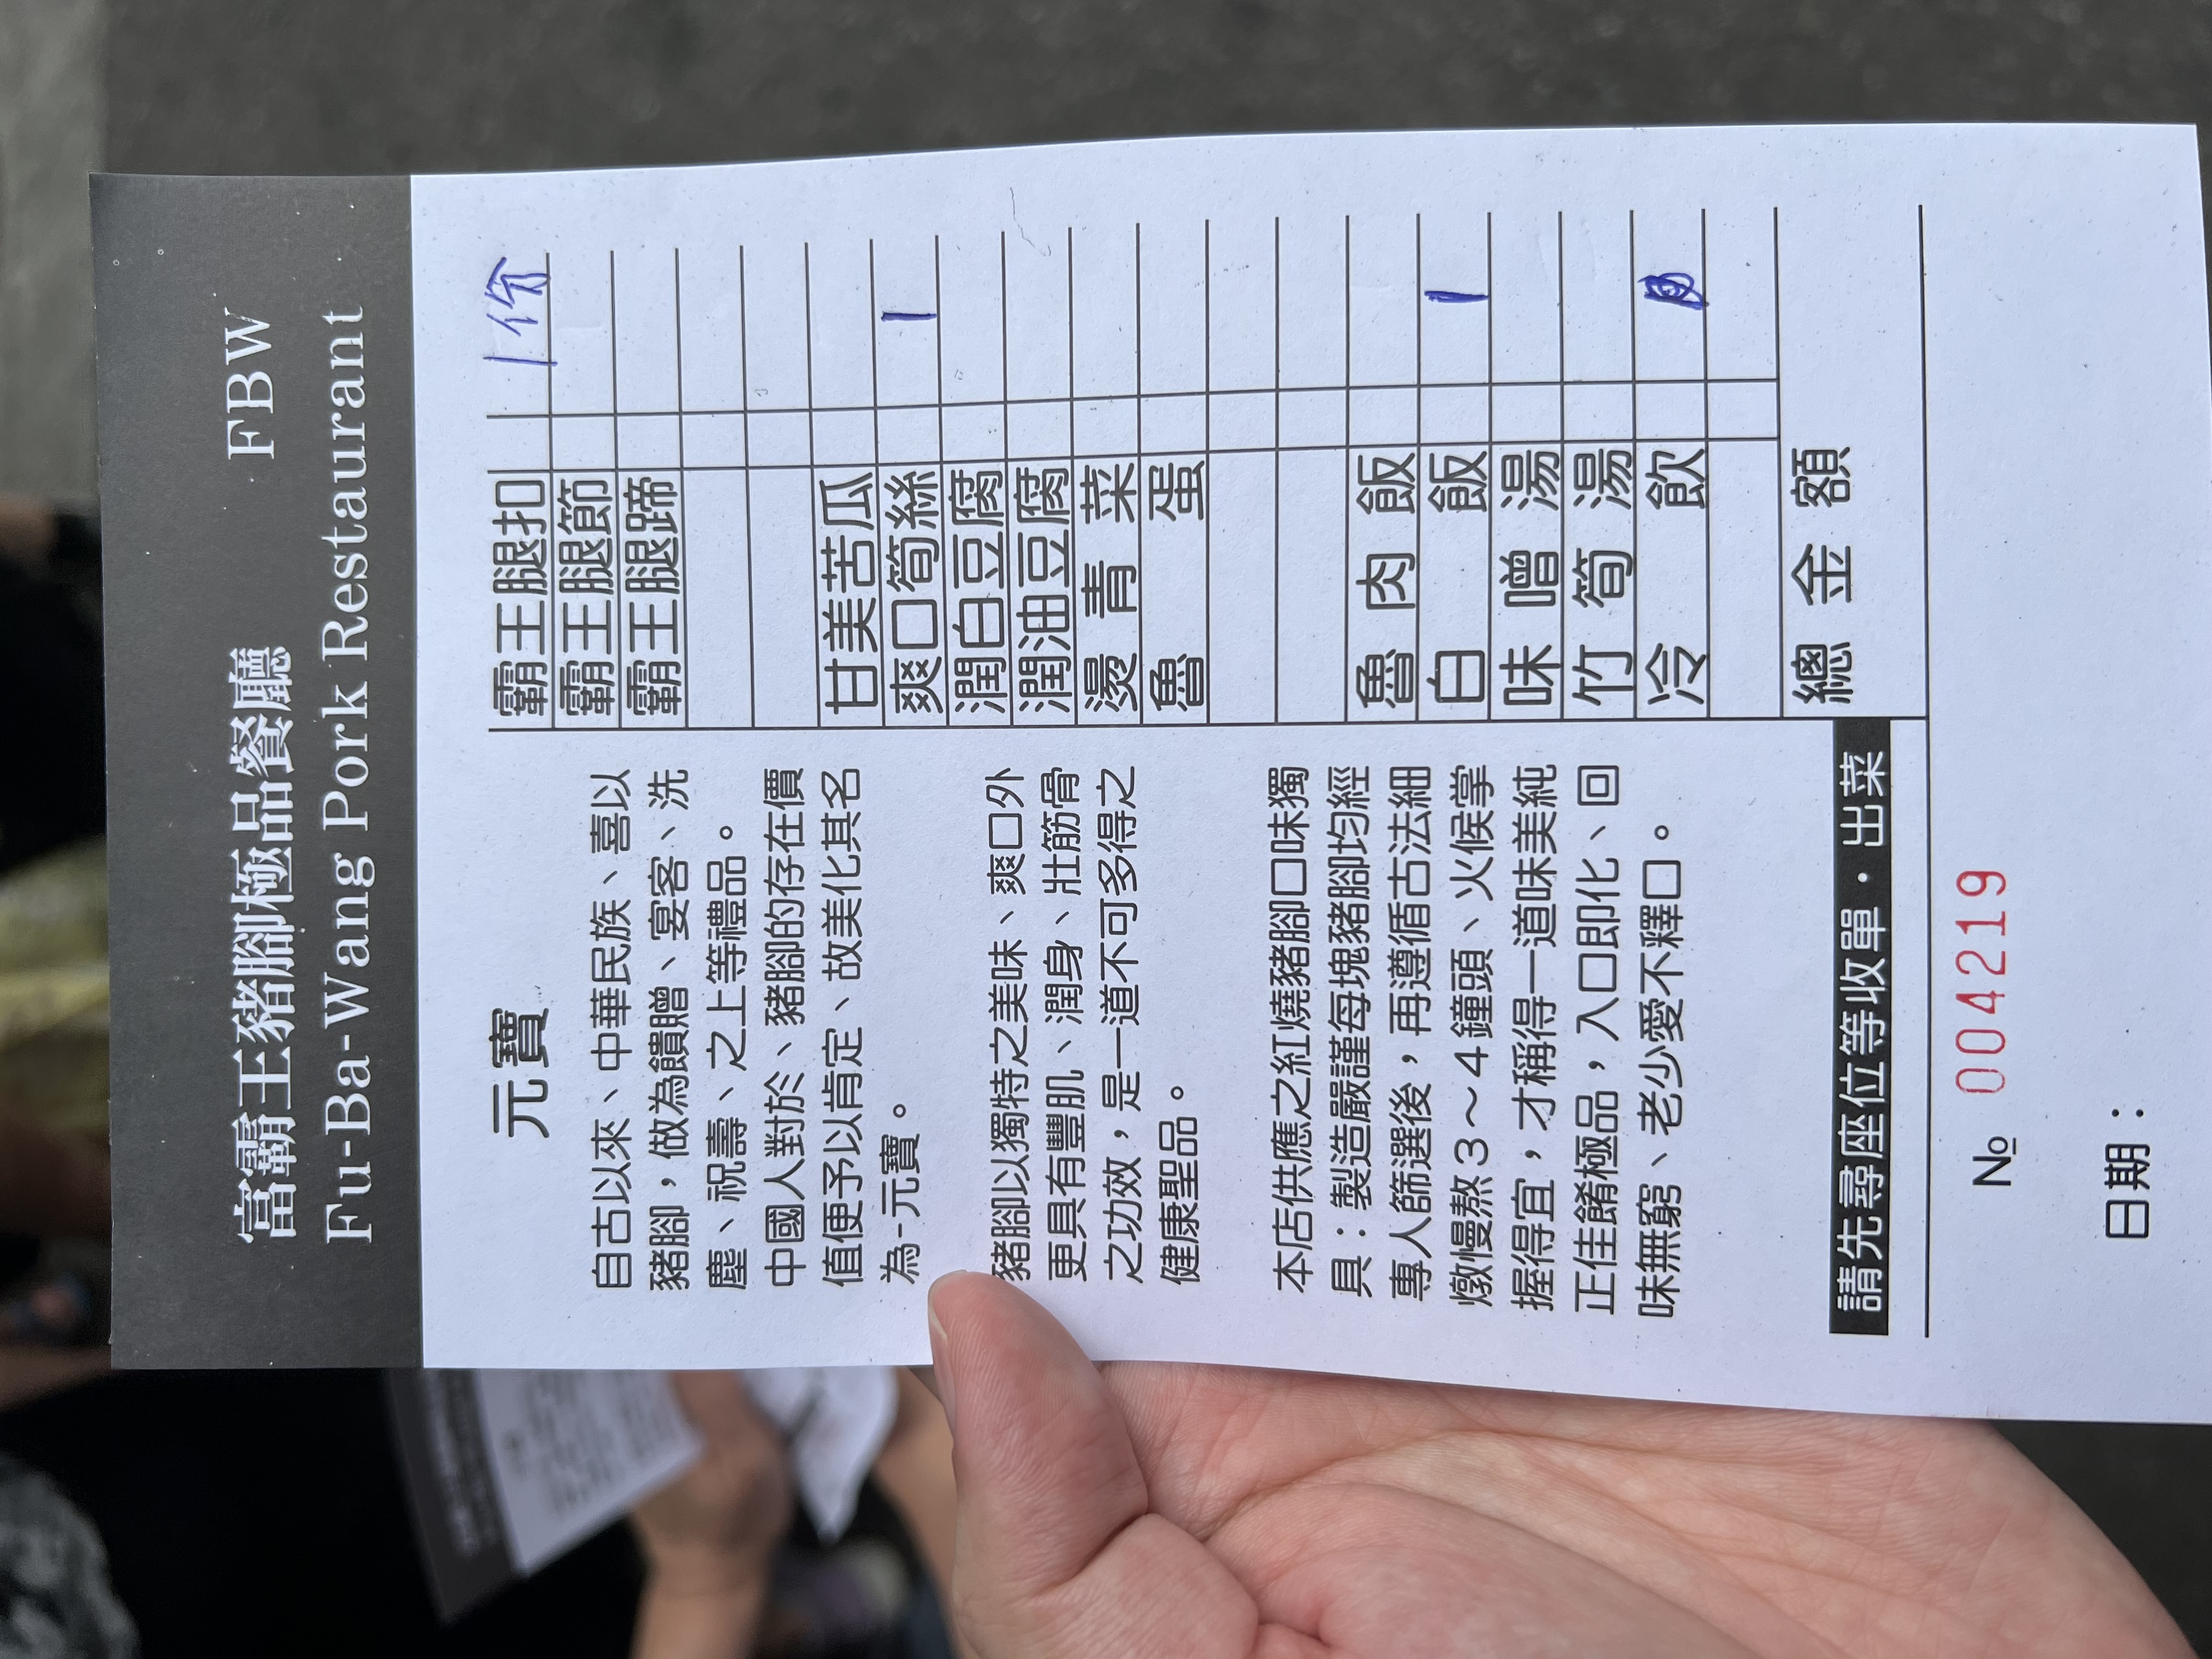 富霸王豬腳極品餐廳 FBW
Fu-Ba-Wang Pork Restaurant
元寶
自古以來、中華民族、喜以
豬腳，做為饋贈、宴客、洗
塵、祝壽、之上等禮品。
中國人對於、豬腳的存在價
值便予以肯定、故美化其名
為-元寶。
豬腳以獨特之美味、爽口外
更具有豐肌、潤身、壯筋骨
之功效，是一道不可多得之
健康聖品。
本店供應之紅燒豬腳口味獨
具：製造嚴謹每塊豬腳均經
專人篩選後，再遵循古法細
燉慢熬3～4鐘頭、火候掌
握得宜，才稱得一道味美純
正佳餚極品，入口即化、回
味無窮、老少愛不釋口。
請先尋座位等收單・出菜
霸王腿扣 1份
霸王腿節
霸王腿蹄
甘美苦瓜
爽口筍絲 1
潤白豆腐
潤油豆腐
燙青菜
魯蛋
魯肉飯
白飯 1
味噌湯
竹筍湯
冷飲
總金額
№ 004219
日期：